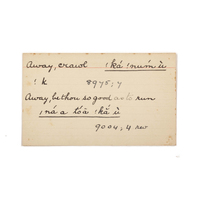 Away, crawl !ká !nuḿ ù
! k 8975; 7
Away, be thou so good as to run
!ná a tóä !kă ù
9004; 4 rev